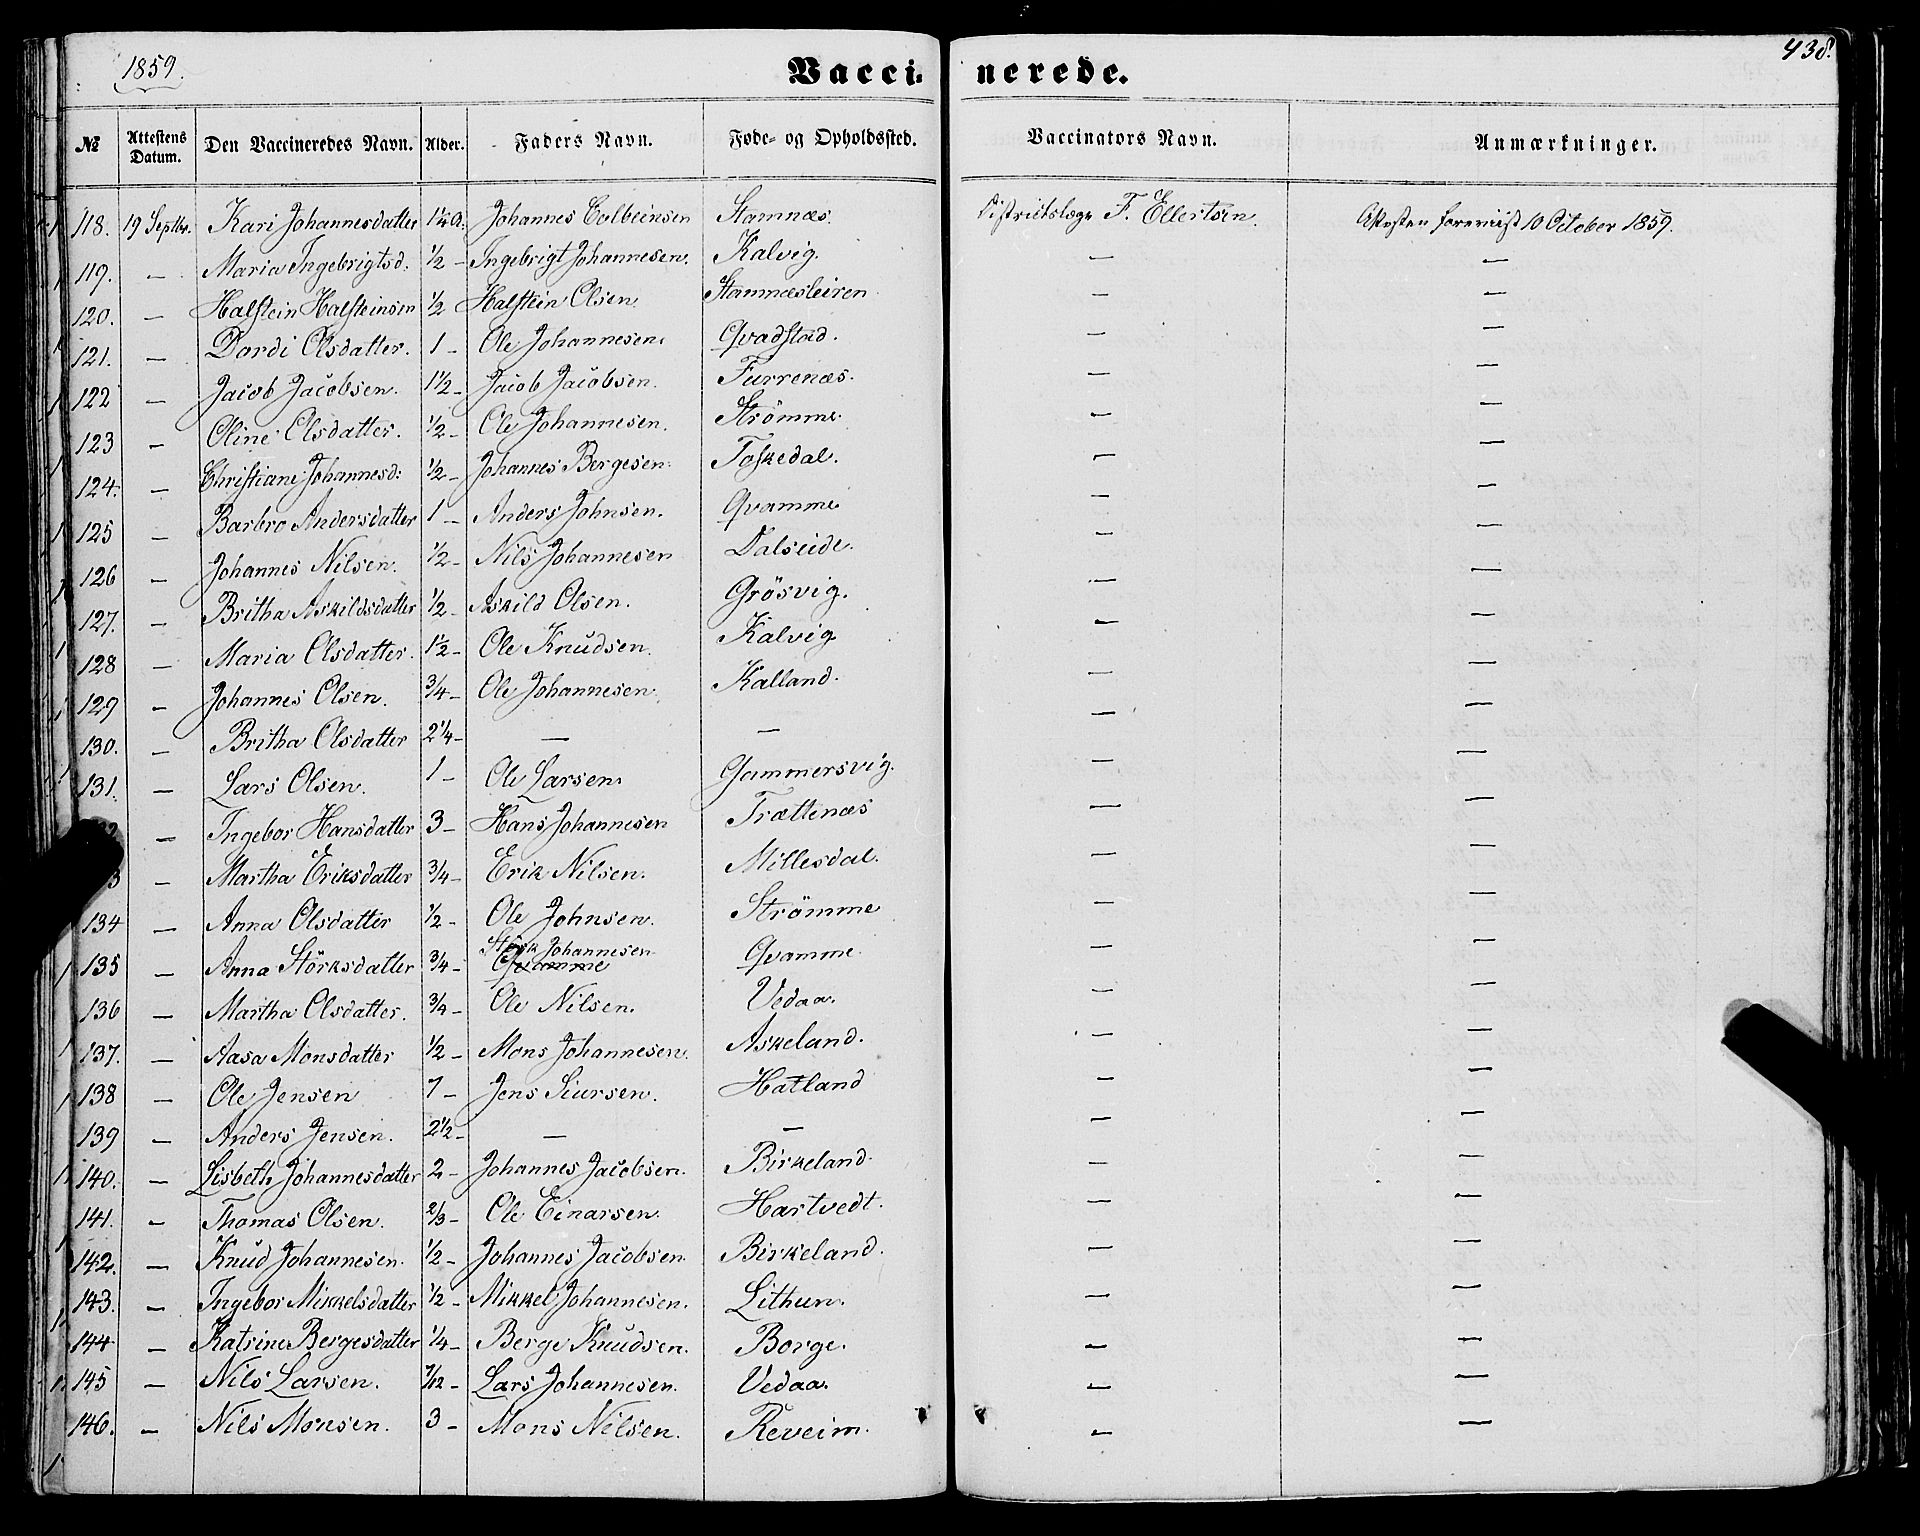 1859.
438.
Vaccinerede.
№ Attestens Datum. Den Vaccineredes Navn. Alder. Faders Navn. Føde- og Opholdssted. Vaccinators Navn. Anmærkninger.
118. 19 Septbr. Kari Johannesdatter 1¼ A. Johannes Colbeinsen Stamnæs. Districtslæge F. Ellertsen. Attesten foreviist 10 October 1859.
119. — Maria Ingebrigtsd. ½ — Ingebrigt Johannesen. Kalvig. — —
120. — Halstein Halsteinsen ½ Halstein Olsen Stamnæsleiren — —
121. — Dordi Olsdatter. 1 — Ole Johannesen. Qvadstad. — —
122 — Jacob Jacobsen. 1½ — Jacob Jacobsen. Furrenæs. — —
123 — Oline Olsdatter. ½ — Ole Johannesen. Strömme — —
124. — Christiane Johannesd: ½ — Johannes Bergesen. Toskedal. — —
125 — Barbro Andersdatter 1 — Anders Johnsen. Qvamme — —
126 — Johannes Nilsen. ½ — Nils Johannesen Dalseide. — —
127. — Britha Askildsdatter ½ — Askild Olsen. Grösvig. — —
128 — Maria Olsdatter. 1½ — Ole Knudsen. Kalvig — —
129 — Johannes Olsen. ¾ — Ole Johannesen. Kalland. — —
130. — Britha Olsdatter 2¼ — — — — —
131. — Lars Olsen. 1 — Ole Larsen. Gammersvig. — —
— Ingebor Hansdatter 3 — Hans Johannesen Trættenæs — —
3 — Martha Eriksdatter ¾ — Erik Nilsen. Millesdal. — —
134 — Anna Olsdatter ½ — Ole Johnsen. Strömme — —
135 — Anna Störksdatter ¾ — Störk Johannesen Qvamme Qvamme — —
136 — Martha Olsdatter. ¾ — Ole Nilsen. Vedaa. — —
137. — Aasa Monsdatter ½ — Mons Johannesen. Askeland. — —
138 — Ole Jensen 7 — Jens Siursen. Hatland — —
139 — Anders Jensen. 2½ — — — — —
140. — Lisbeth Johannesdatter 2 — Johannes Jacobsen. Birkeland. — —
141. — Thomas Olsen. ⅔ — Ole Einarsen Hartvedt. — —
142. — Knud Johannesen. ½ — Johannes Jacobsen. Birkeland. — —
143. — Ingebor Mikkelsdatter ½ — Mikkel Johannesen. Lithun. — —
144 — Katrine Bergesdatter ¼ — Berge Knudsen. Borge. — —
145 — Nils Larsen. 7/12 — Lars Johannesen. Vedaa. — —
146. — Nils Monsen. 3 — Mons Nilsen. Reveim. — —